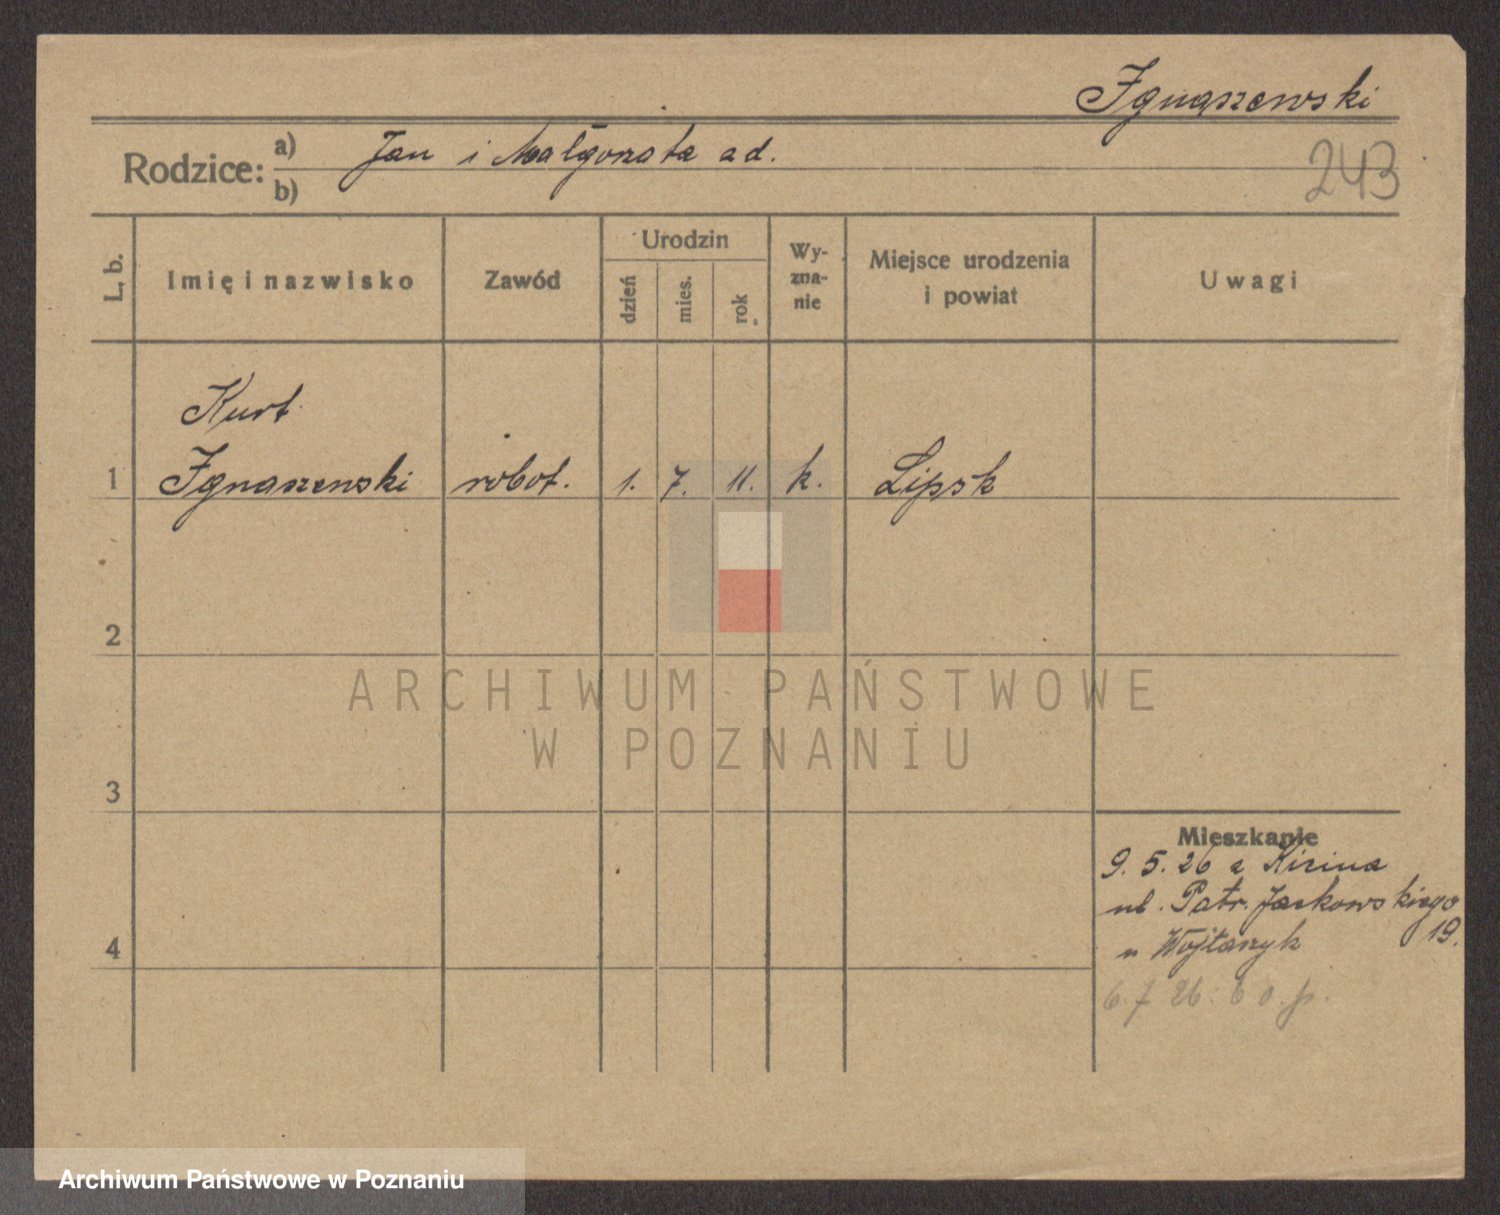 Ignaszewski
243
Rodzice: a) Jan i Małgorzata ad.
b)
L. b.
Imię i nazwisko
Zawód
Urodzin
dzień
mies.
rok
Wy-
zna-
nie
Miejsce urodzenia
i powiat
Uwagi
Kurt
1 Ignaszewski robot. 1. 7. 11. k. Lipsk
2
ARCHIWUM PAŃSTWOWE
W POZNANIU
3
Mieszkanie
9. 5. 26 z
ul. Patr. Jackowskiego
19.
u Wojtaszyk
4
6. 7 26.
Archiwum Państwowe w Poznaniu